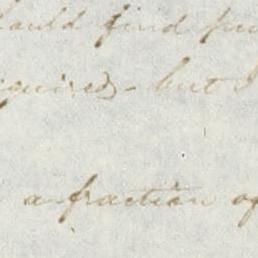 should find
required - but I
a fraction of